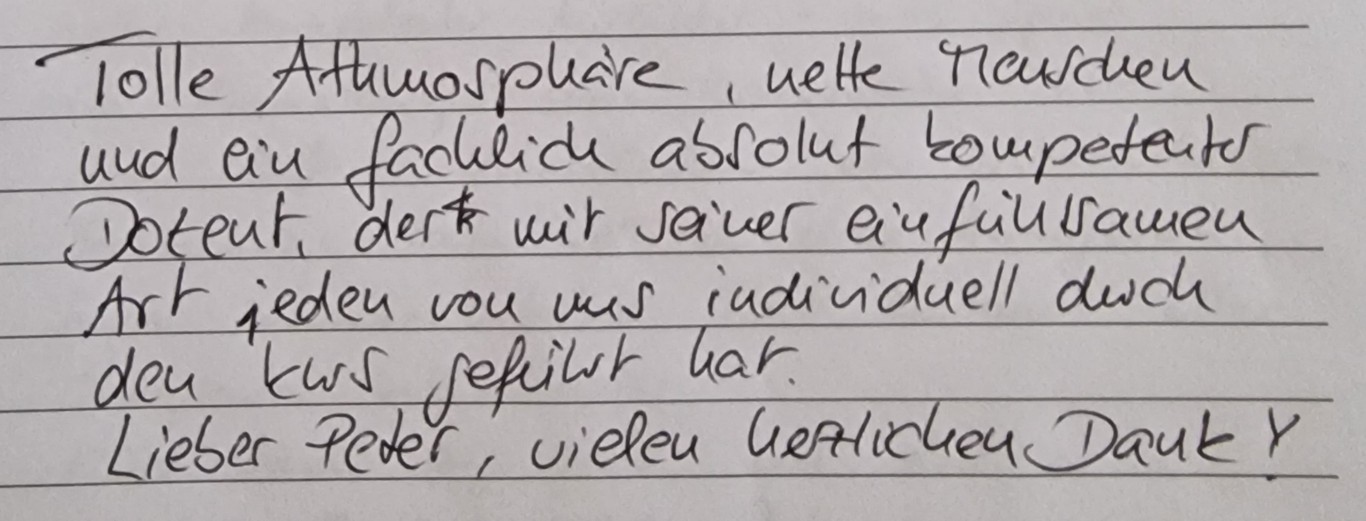 Tolle Athmosphäre, nette Menschen
und ein fachlich absolut kompetenter
Dozent, der mit seiner einfühlsamen
Art jeden von uns individuell durch
den Kurs geführt hat.
Lieber Peter, vielen herzlichen Dank!